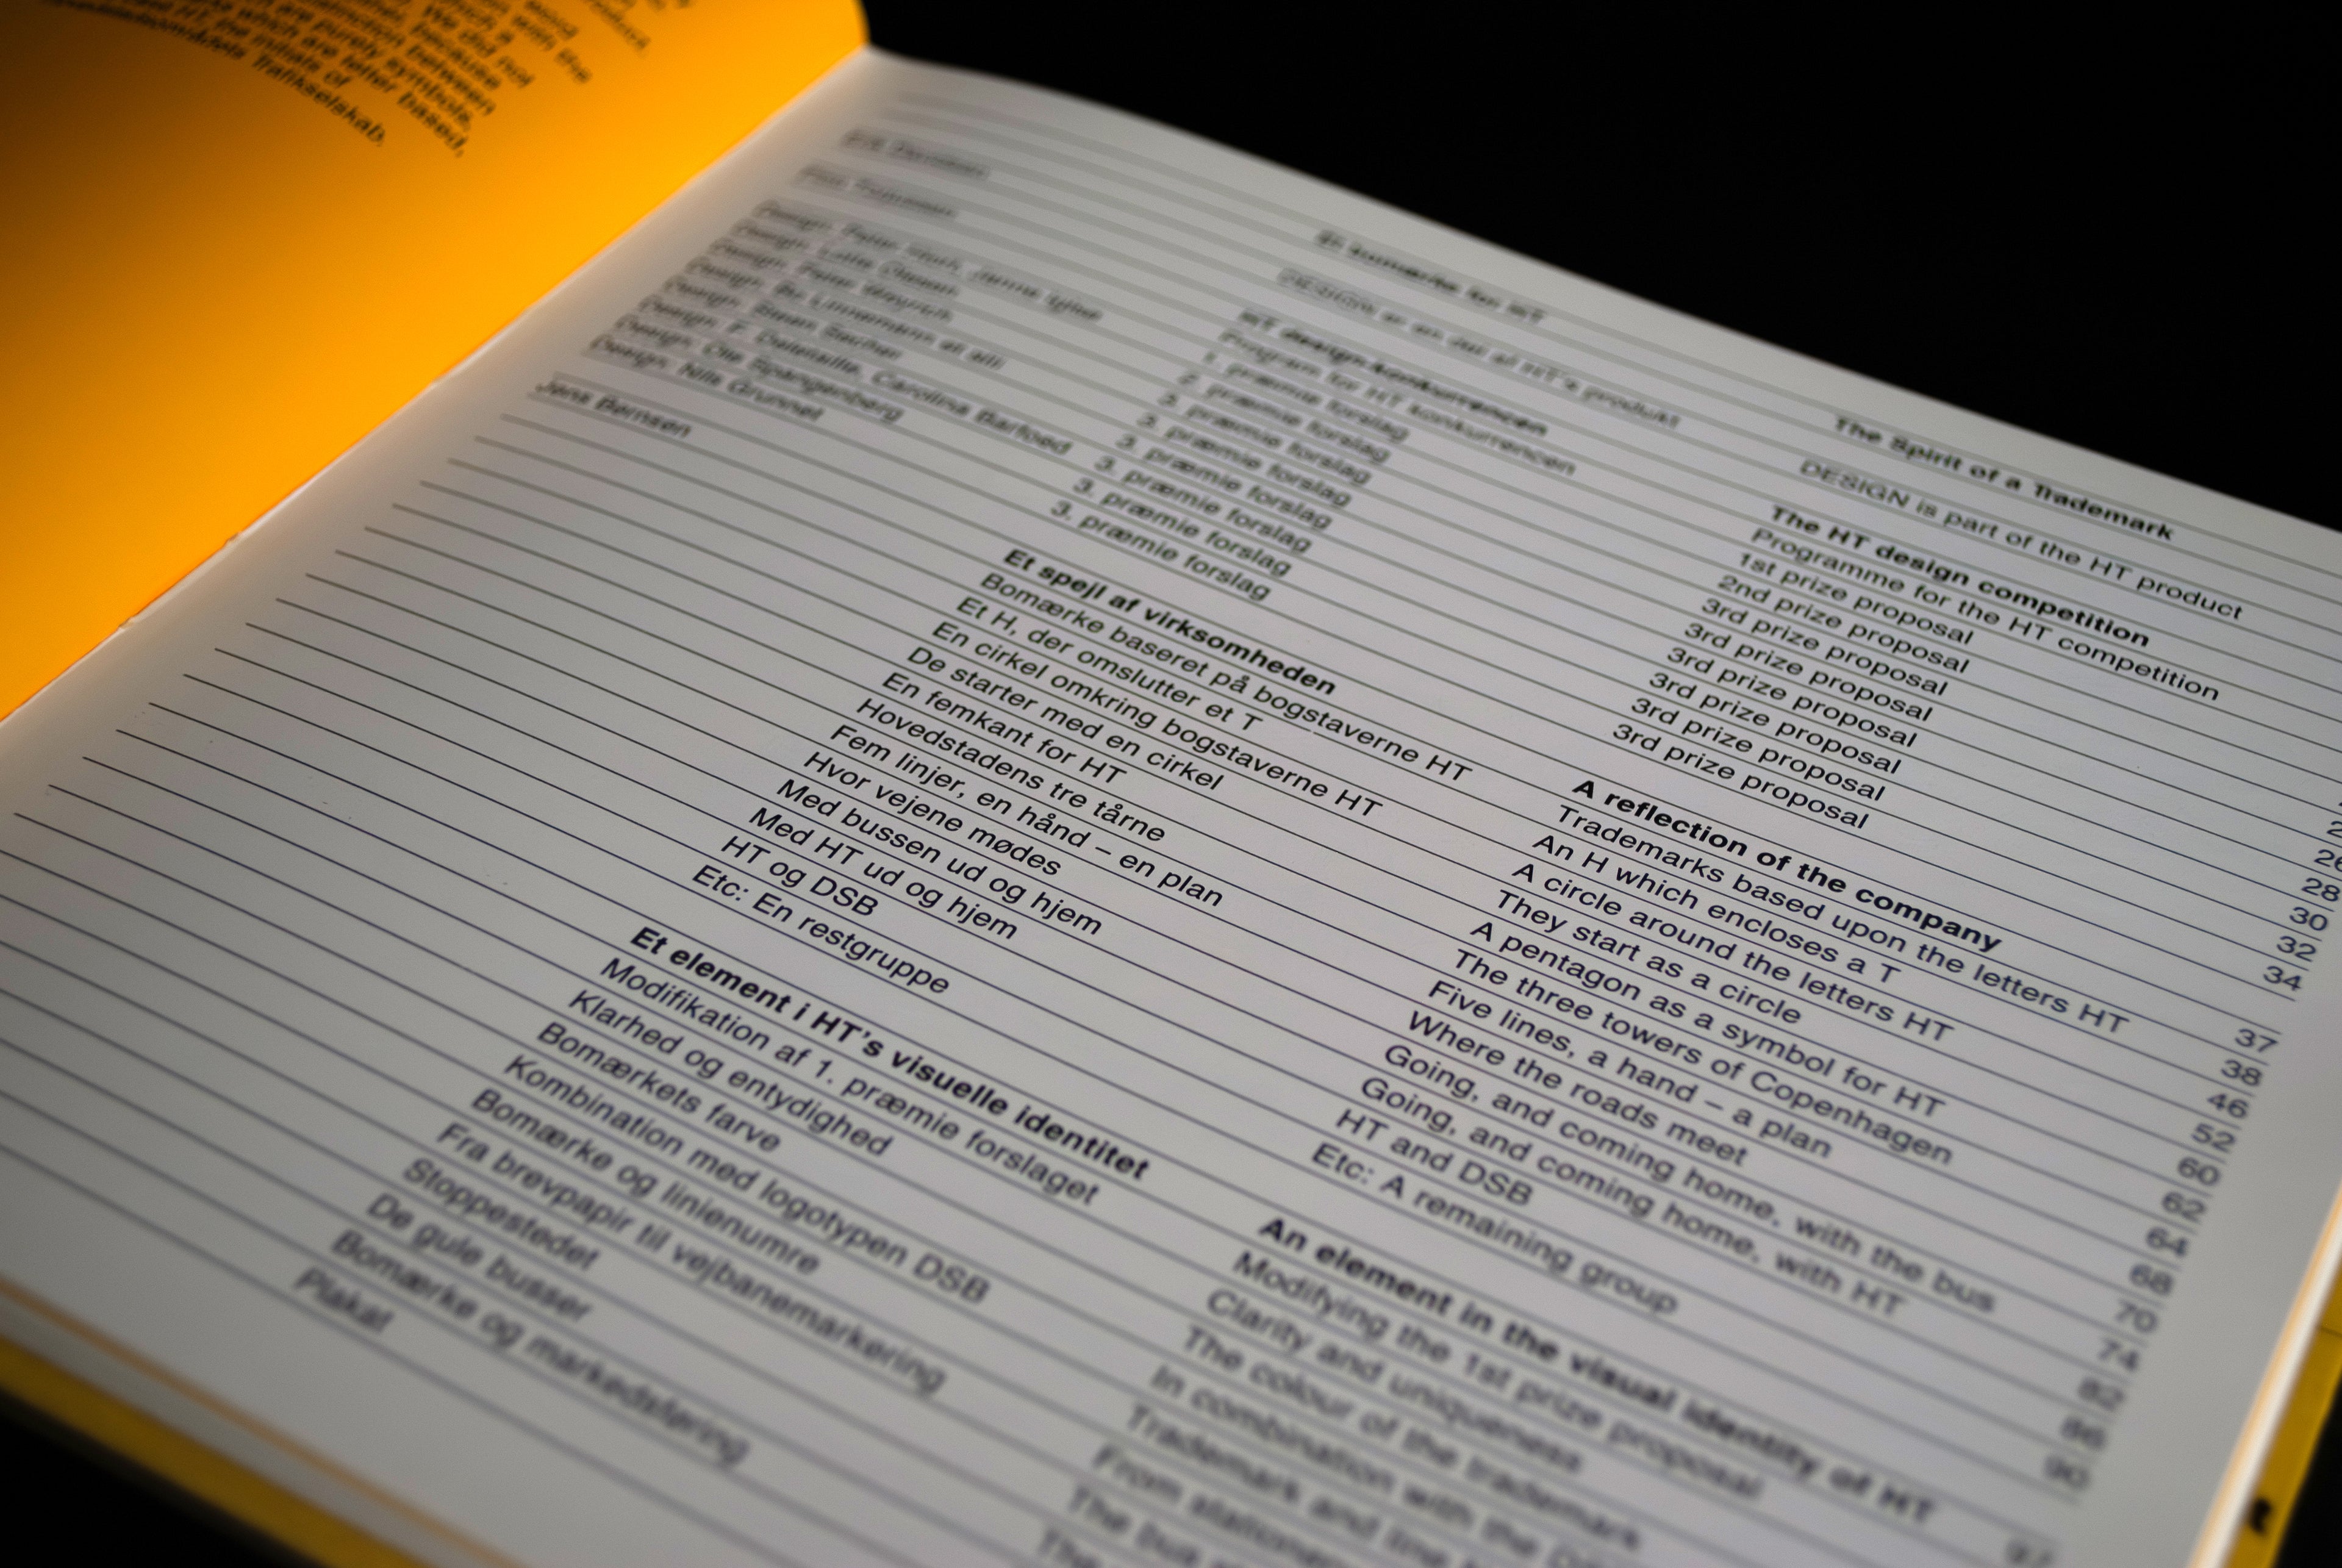 are purely symbols,
which are letter based,
the initials of
Trafikselskab.
Design: Lotte Olesen
Design: Bo Linnemann et alii
Design: Ole Spangenberg
Design: Nils Grunnet
Jens Bernsen
Et bomærke for HT
DESIGN er en del af HT's produkt
HT design-konkurrencen
Program for HT konkurrencen
1. præmie forslag
2. præmie forslag
3. præmie forslag
3. præmie forslag
3. præmie forslag
3. præmie forslag
3. præmie forslag
3. præmie forslag
Et spejl af virksomheden
Bomærke baseret på bogstaverne HT
Et H, der omslutter et T
En cirkel omkring bogstaverne HT
De starter med en cirkel
En femkant for HT
Hovedstadens tre tårne
Fem linjer, en hånd – en plan
Hvor vejene mødes
Med bussen ud og hjem
Med HT ud og hjem
HT og DSB
Etc: En restgruppe
Et element i HT's visuelle identitet
Modifikation af 1. præmie forslaget
Klarhed og entydighed
Bomærkets farve
Kombination med logotypen DSB
Bomærke og linienumre
Fra brevpapir til vejbanemarkering
Stoppestedet
De gule busser
Bomærke og markedsføring
Plakat
The Spirit of a Trademark
DESIGN is part of the HT product
The HT design competition
Programme for the HT competition
1st prize proposal
2nd prize proposal
3rd prize proposal
3rd prize proposal
3rd prize proposal
3rd prize proposal
3rd prize proposal
3rd prize proposal
A reflection of the company
Trademarks based upon the letters HT
An H which encloses a T
A circle around the letters HT
They start as a circle
A pentagon as a symbol for HT
The three towers of Copenhagen
Five lines, a hand – a plan
Where the roads meet
Going, and coming home, with the bus
Going, and coming home, with HT
HT and DSB
Etc: A remaining group
An element in the visual identity of HT
Modifying the 1st prize proposal
Clarity and uniqueness
The colour of the trademark
In combination with the
Trademark and line
From
The bus
The
26
28
30
32
34
37
38
46
52
60
62
64
68
70
74
82
86
90
97
t